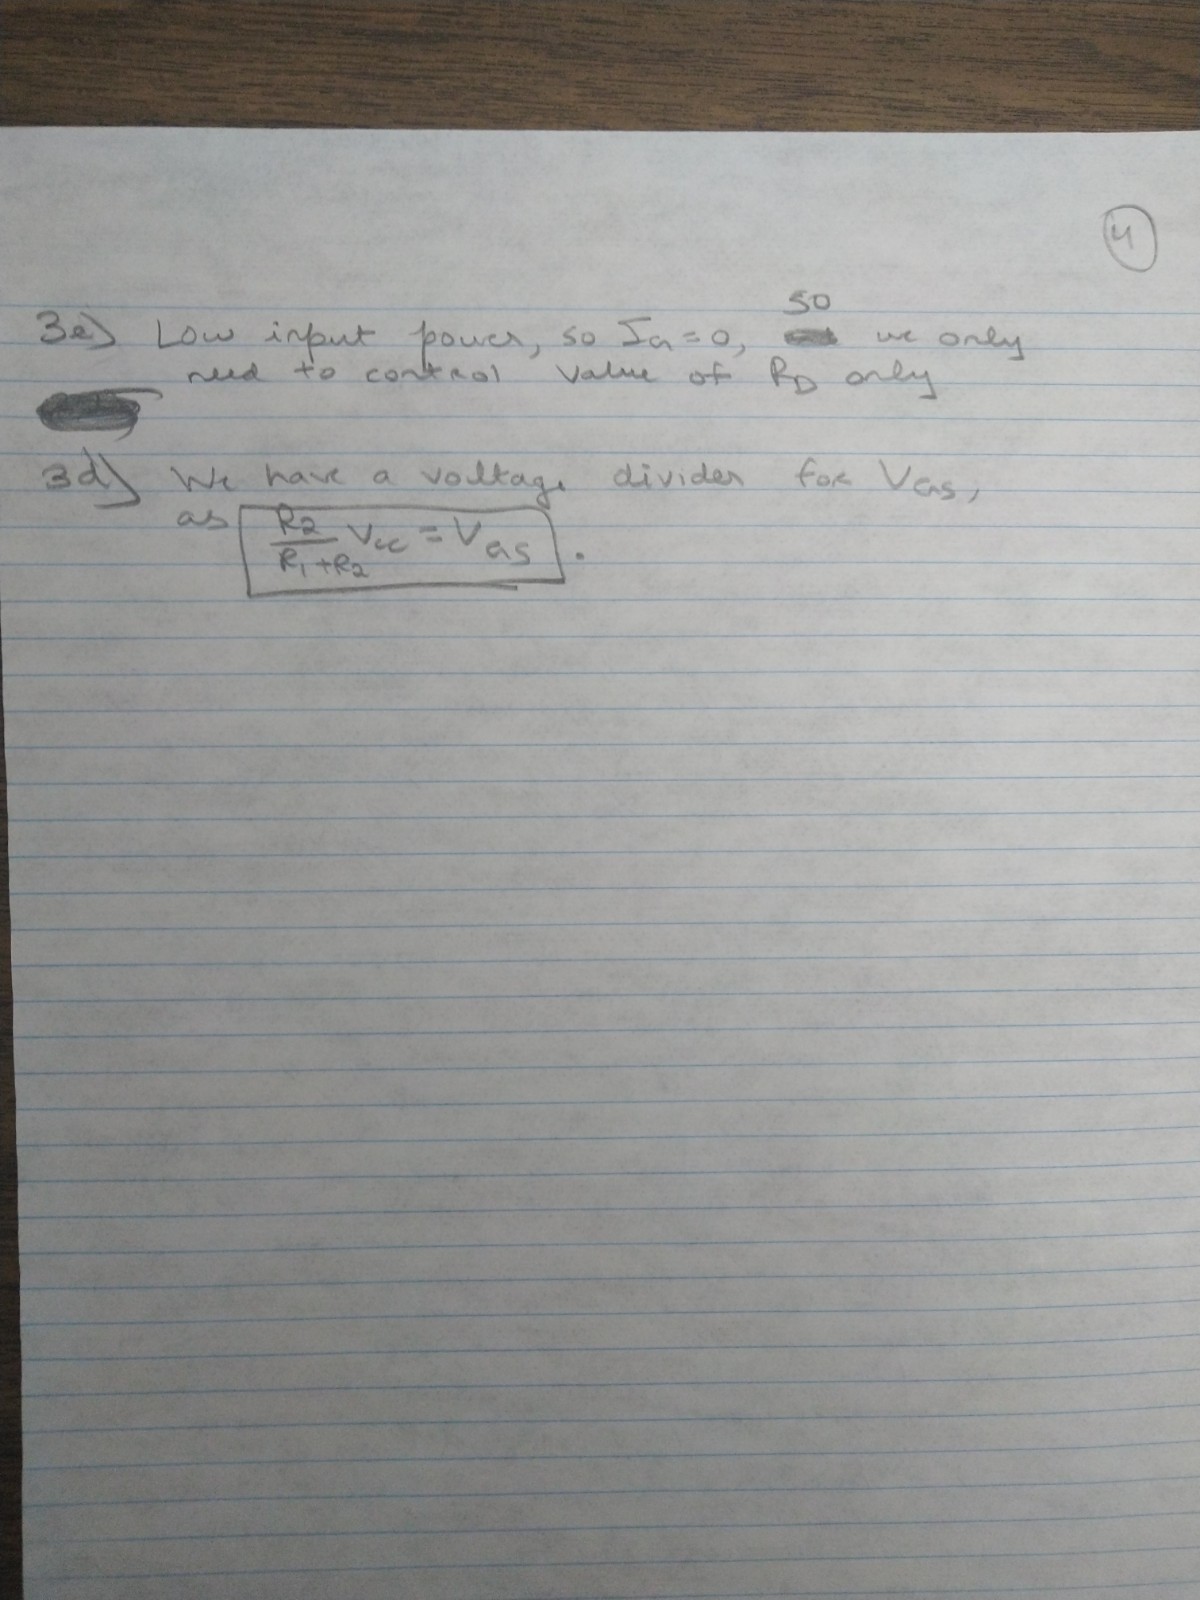 4
3e) Low input power, so IG=0, so we only
need to control value of RD only
3d) We have a voltage divider for VGS,
as R2/(R1+R2) Vcc = VGS.